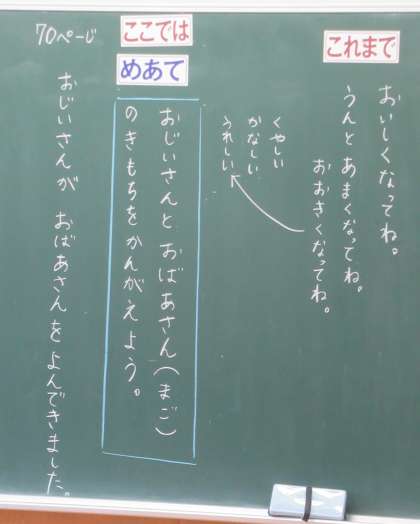 これまで
おいしくなってね。
うんとあまくなってね。
おおきくなってね。
くやしい
かなしい
うれしい
ここでは
めあて
おじいさんとおばあさん(まご)
のきもちをかんがえよう。
70ページ
おじいさんが おばあさんをよんできました。